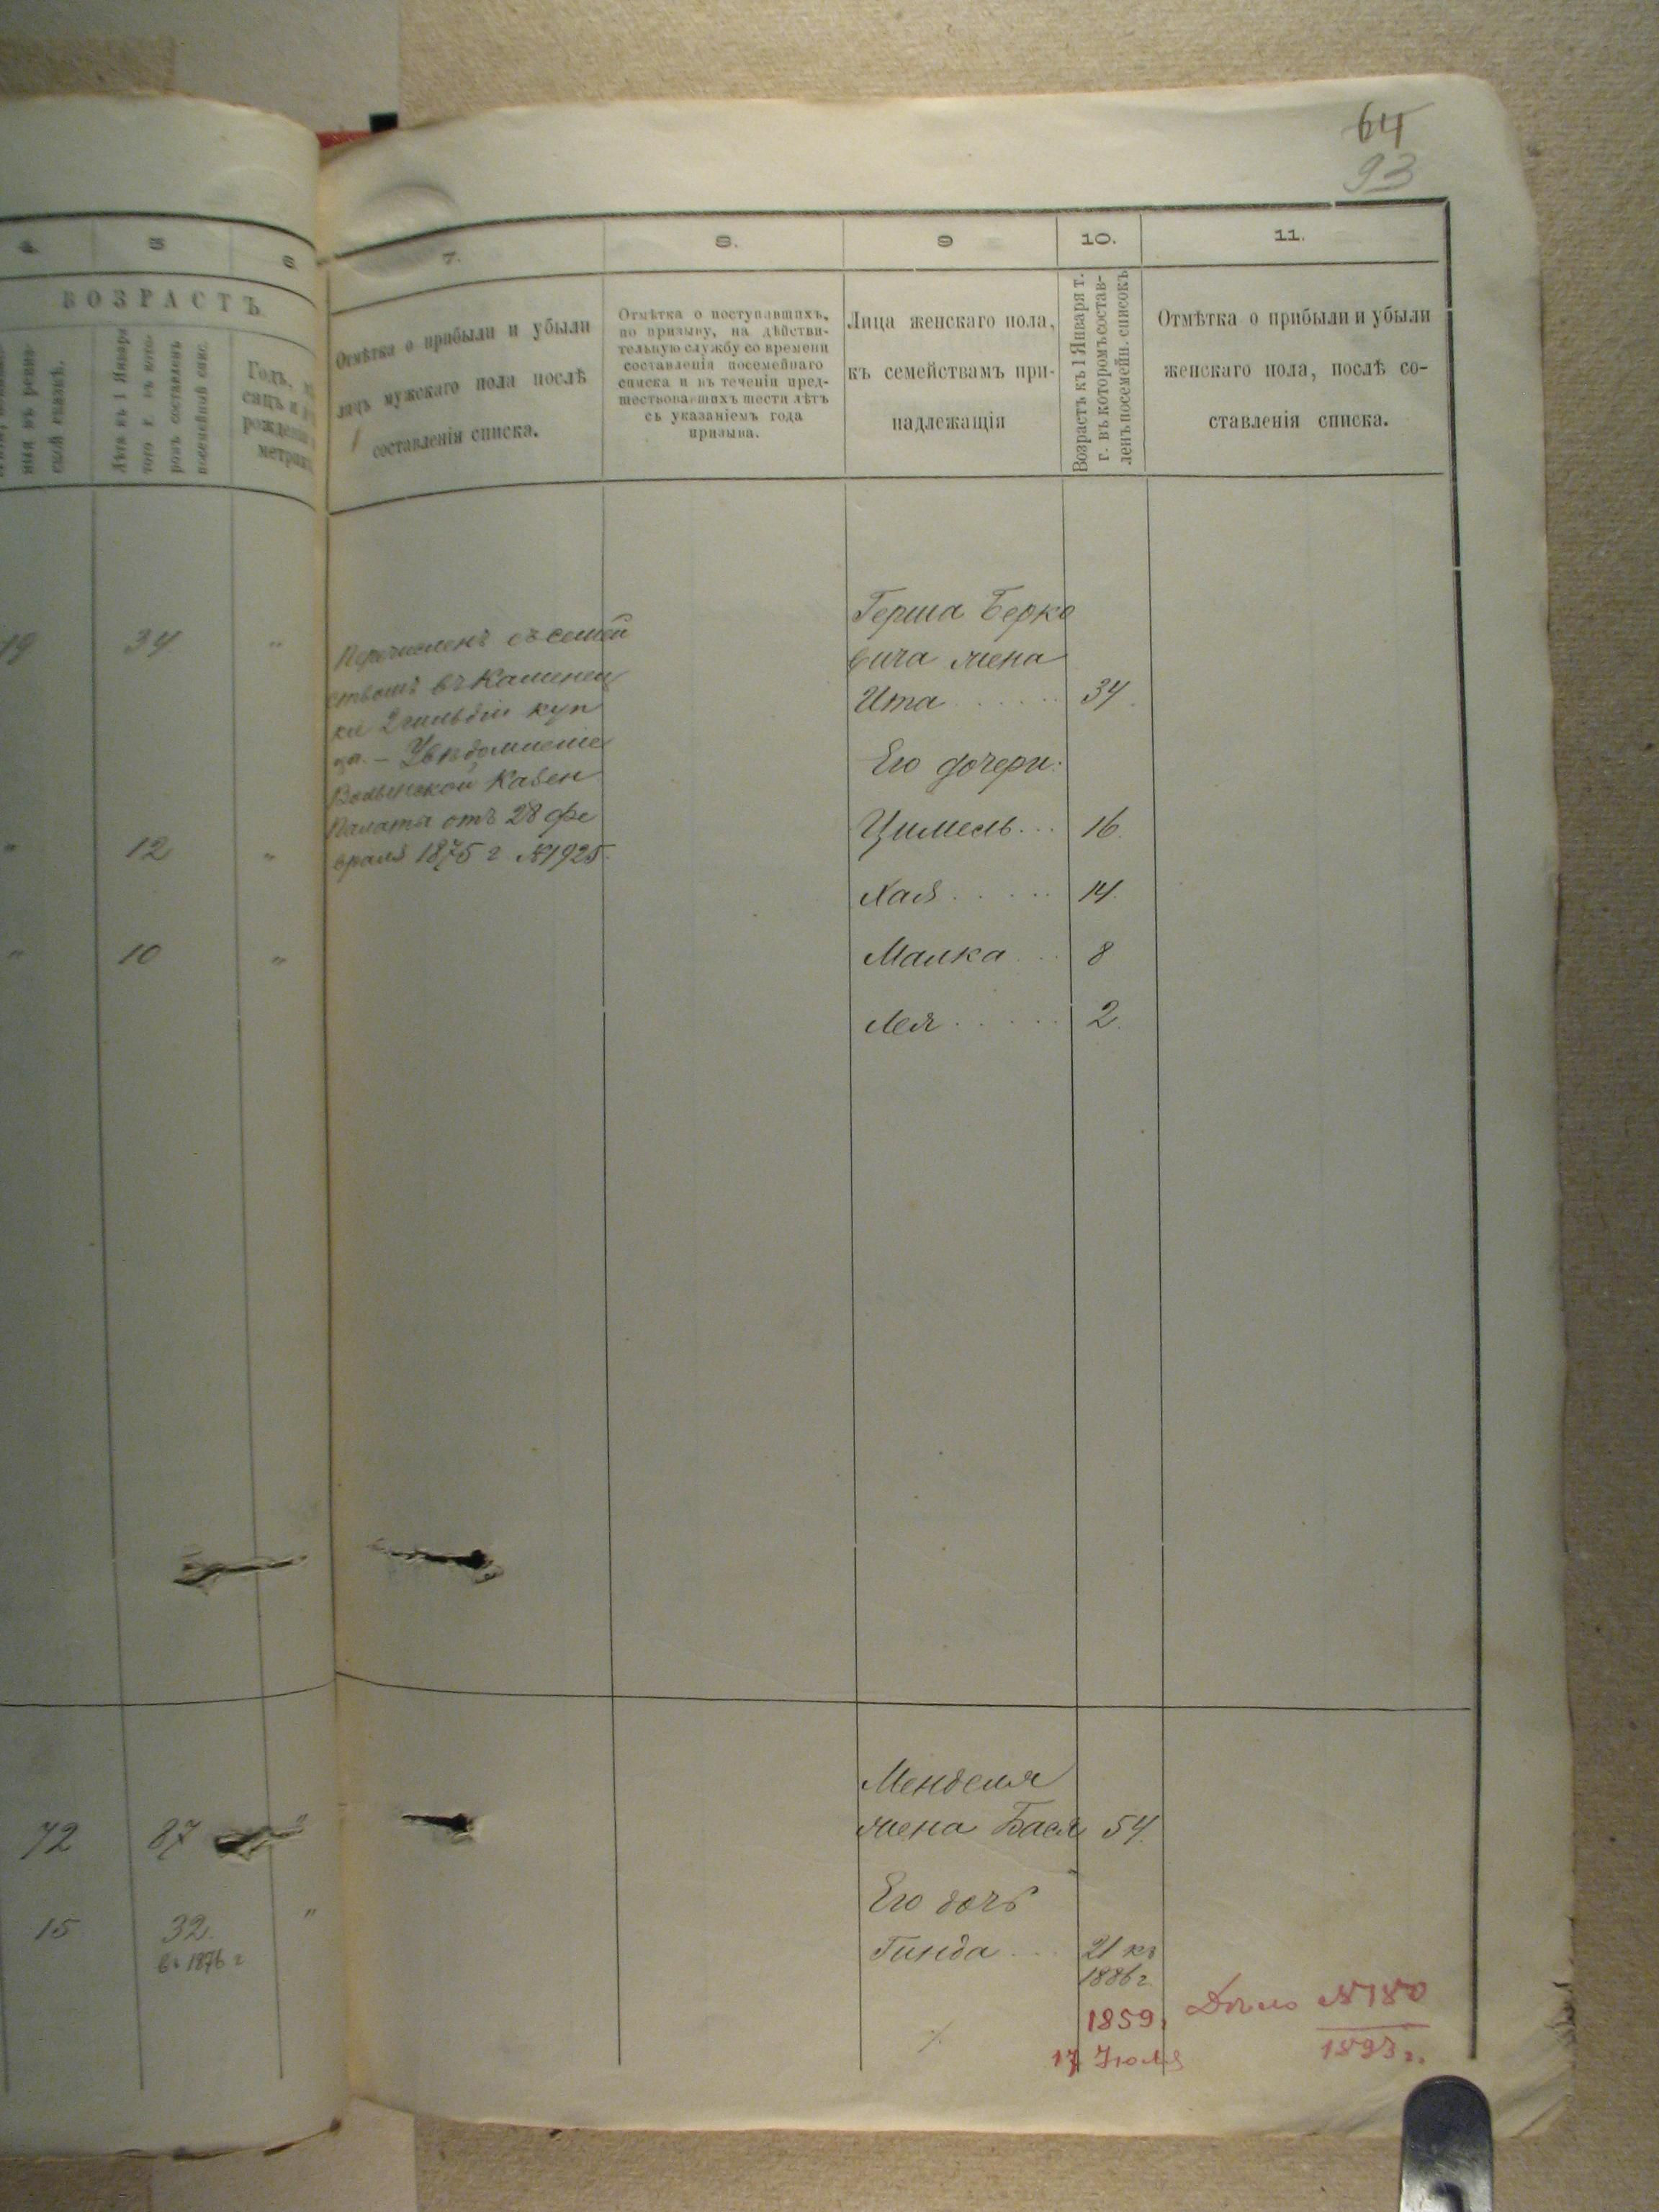 64
93
4.
5
6
7.
8.
9
10.
11.
ВОЗРАСТЪ
Лѣта къ 1 Января
того г. въ кото-
ромъ составленъ
посемейный спис.
Годъ,
рожденія
Отмѣтка о прибыли и убыли
лицъ мужскаго пола послѣ
составленія списка.
Отмѣтка о поступавшихъ,
по призыву, на дѣйстви-
тельную службу со времени
составленія посемейнаго
списка и въ теченіи пред-
шествовавшихъ шести лѣтъ
съ указаніемъ года
призыва.
Лица женскаго пола,
къ семействамъ при-
надлежащія
Возрастъ къ 1 Января т.
г. въ которомъ состав-
ленъ посемейн. списокъ
Отмѣтка о прибыли и убыли
женскаго пола, послѣ со-
ставленія списка.
19 34 "
" 12 "
" 10 "
Перечисленъ съ семей
ствомъ въ Каменец
кіе 2 гильдіи куп
цы. – Увѣдомленіе
Волынской Казен
Палаты отъ 28 фе
враля 1875 г. №1925.
Герша Берко
вича жена
Ита ...... 34.
Его дочери:
Цимель... 16.
Хая ..... 14.
Малка ... 8
Лея ..... 2.
72 87 "
15 32. "
въ 1876 г
Менделя
жена Бася 54.
Его дочь
Гинда ... 21 къ
1886 г.
1859.
17 Іюля
Дѣло №180
1893 г.